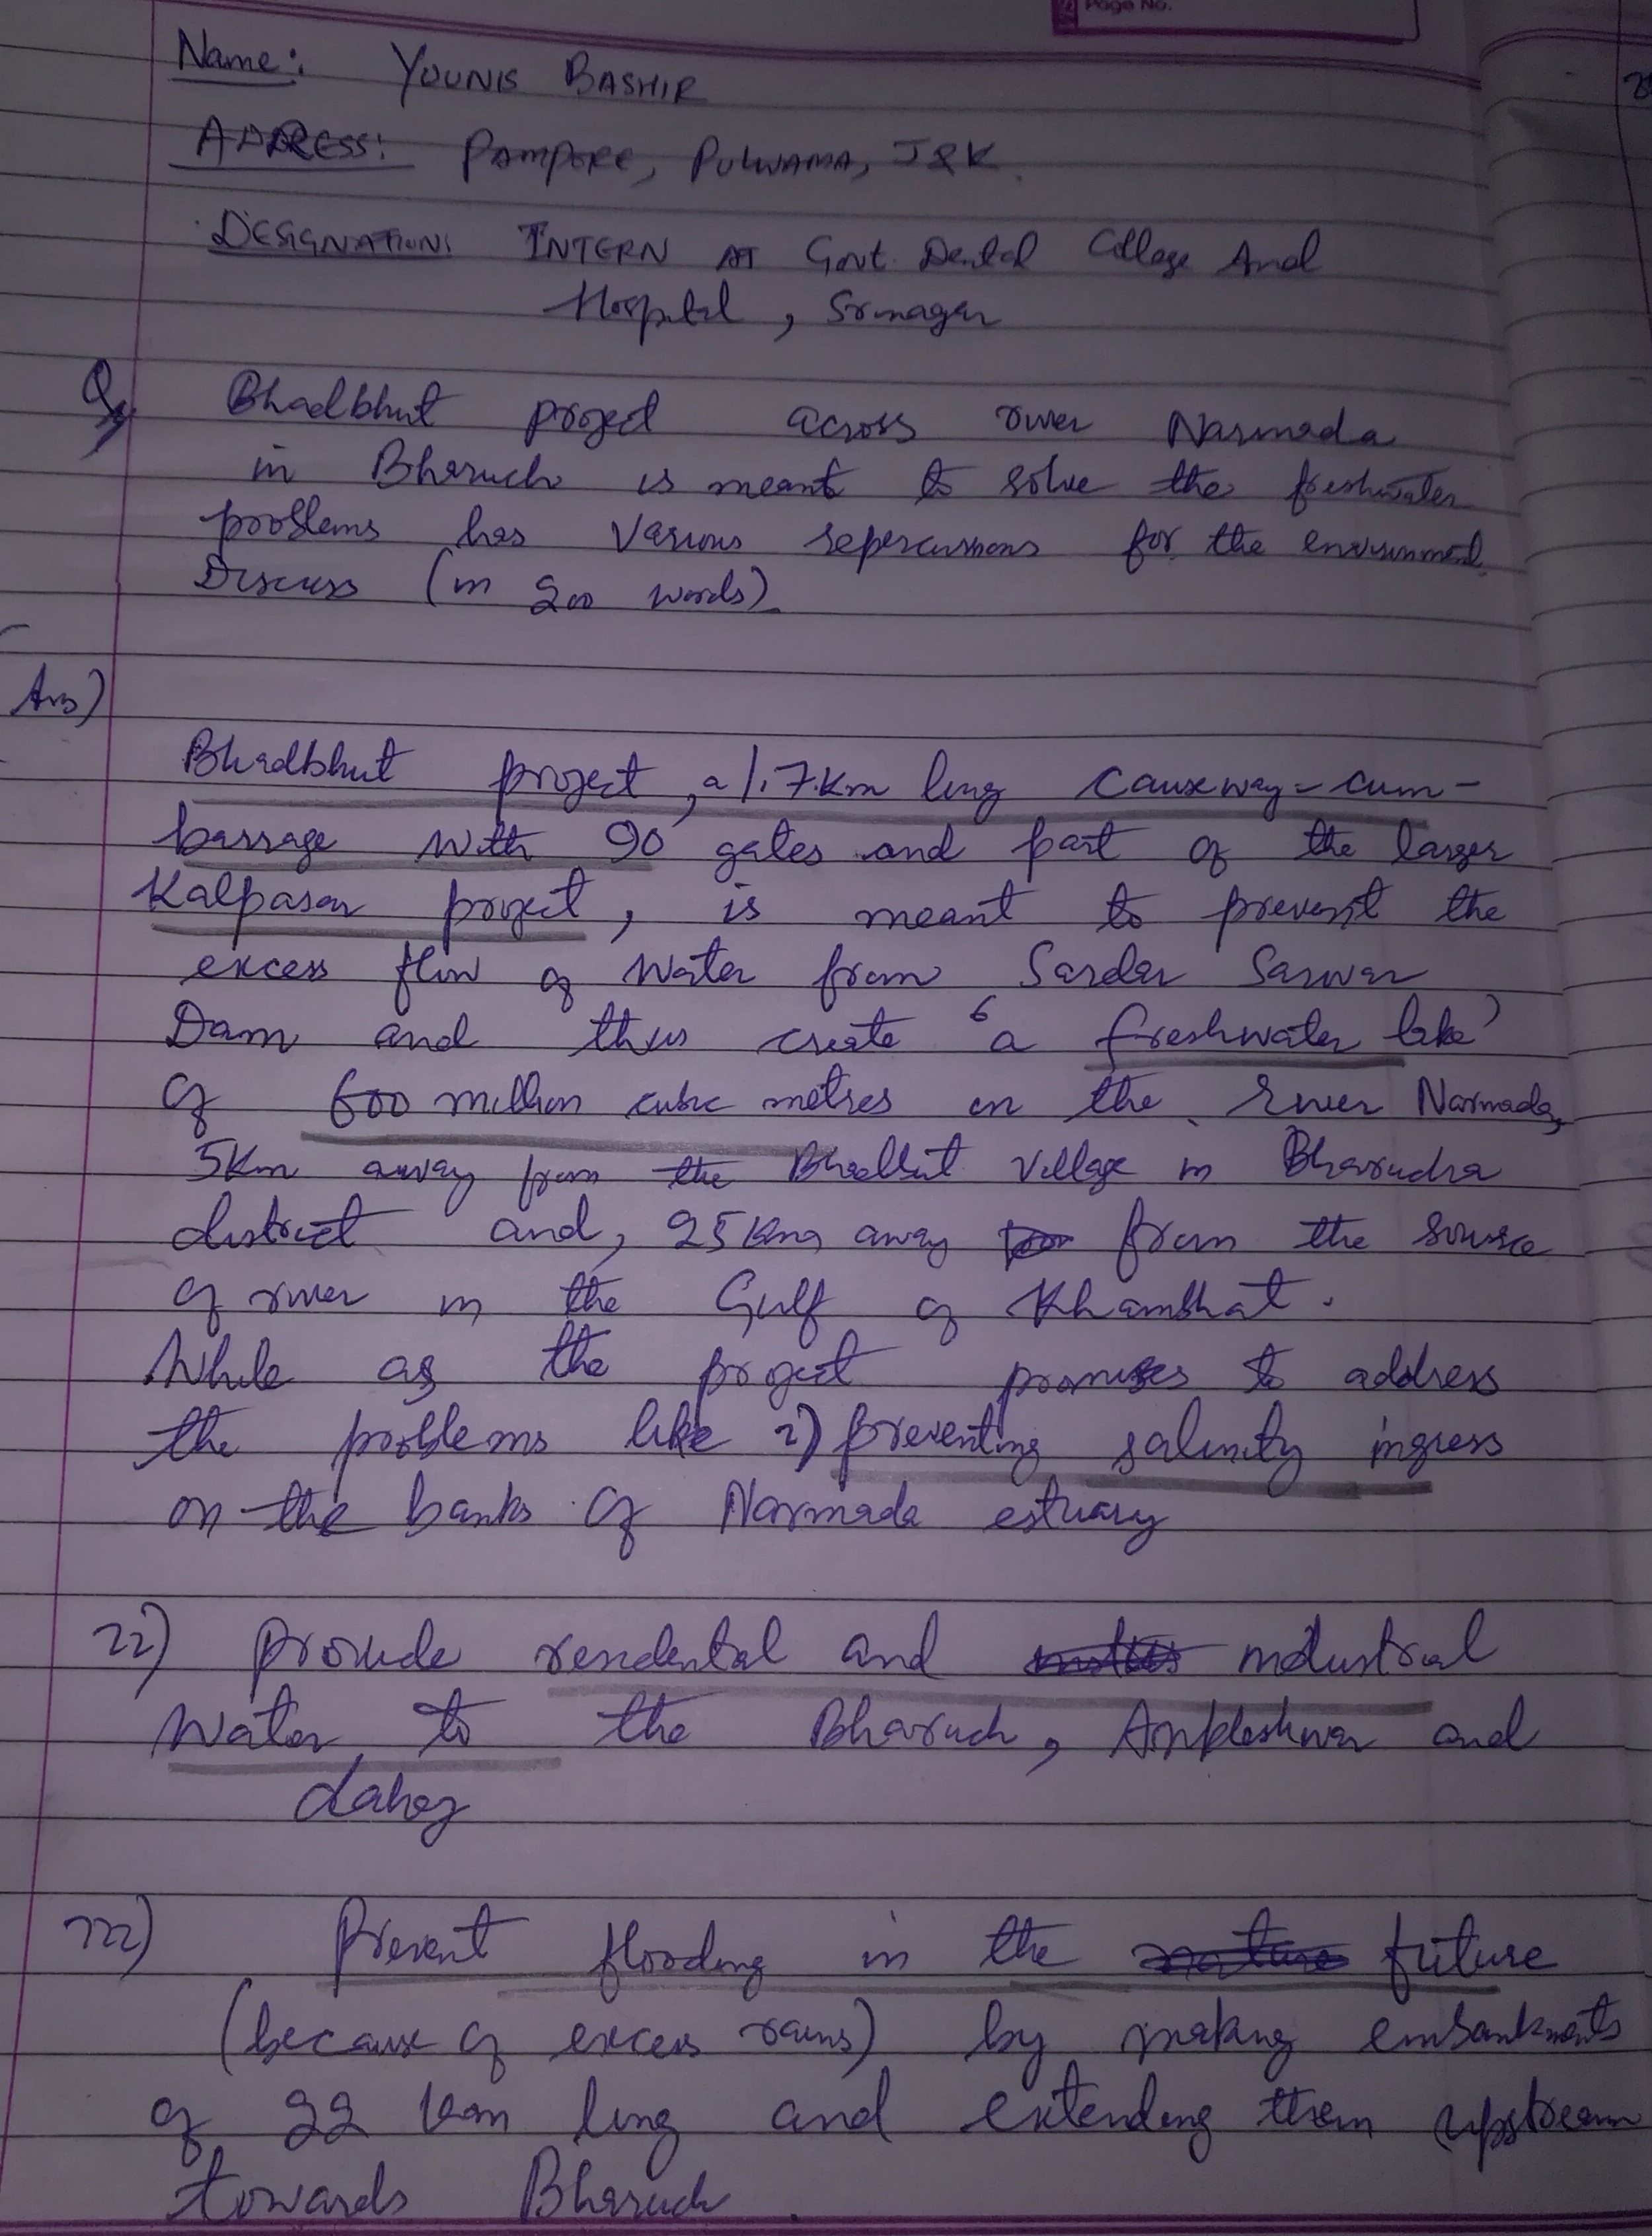 Page No.
Name: YOUNIS BASHIR
ADDRESS: PAMPORE, PULWAMA, J&K.
DESIGNATION: INTERN AT Govt. Dental College And
Hospital, Srinagar
Q Bhadbhut project across river Narmada
in Bharuch is meant to solve the freshwater
problems has various repercussions for the environment.
Discuss (in 200 words).
Ans)
Bhadbhut project, a 1.7 km long causeway-cum-
barrage with 90 gates and part of the larger
Kalpasar project, is meant to prevent the
excess flow of water from Sardar Sarwar
Dam and thus create 'a freshwater lake'
of 600 million cubic metres on the river Narmada,
5km away from the Bhadbhut village in Bharucha
district and, 25 kms away from the source
of river in the Gulf of Khambhat.
While as the project promises to address
the problems like i) preventing salinity ingress
on the banks of Narmada estuary
ii) provide residental and industrial
water to the Bharuch, Ankleshwar and
dahej
iii) Prevent flooding in the future
(because of excess rains) by making embankments
of 22 km long and extending them upstream
towards Bharuch.